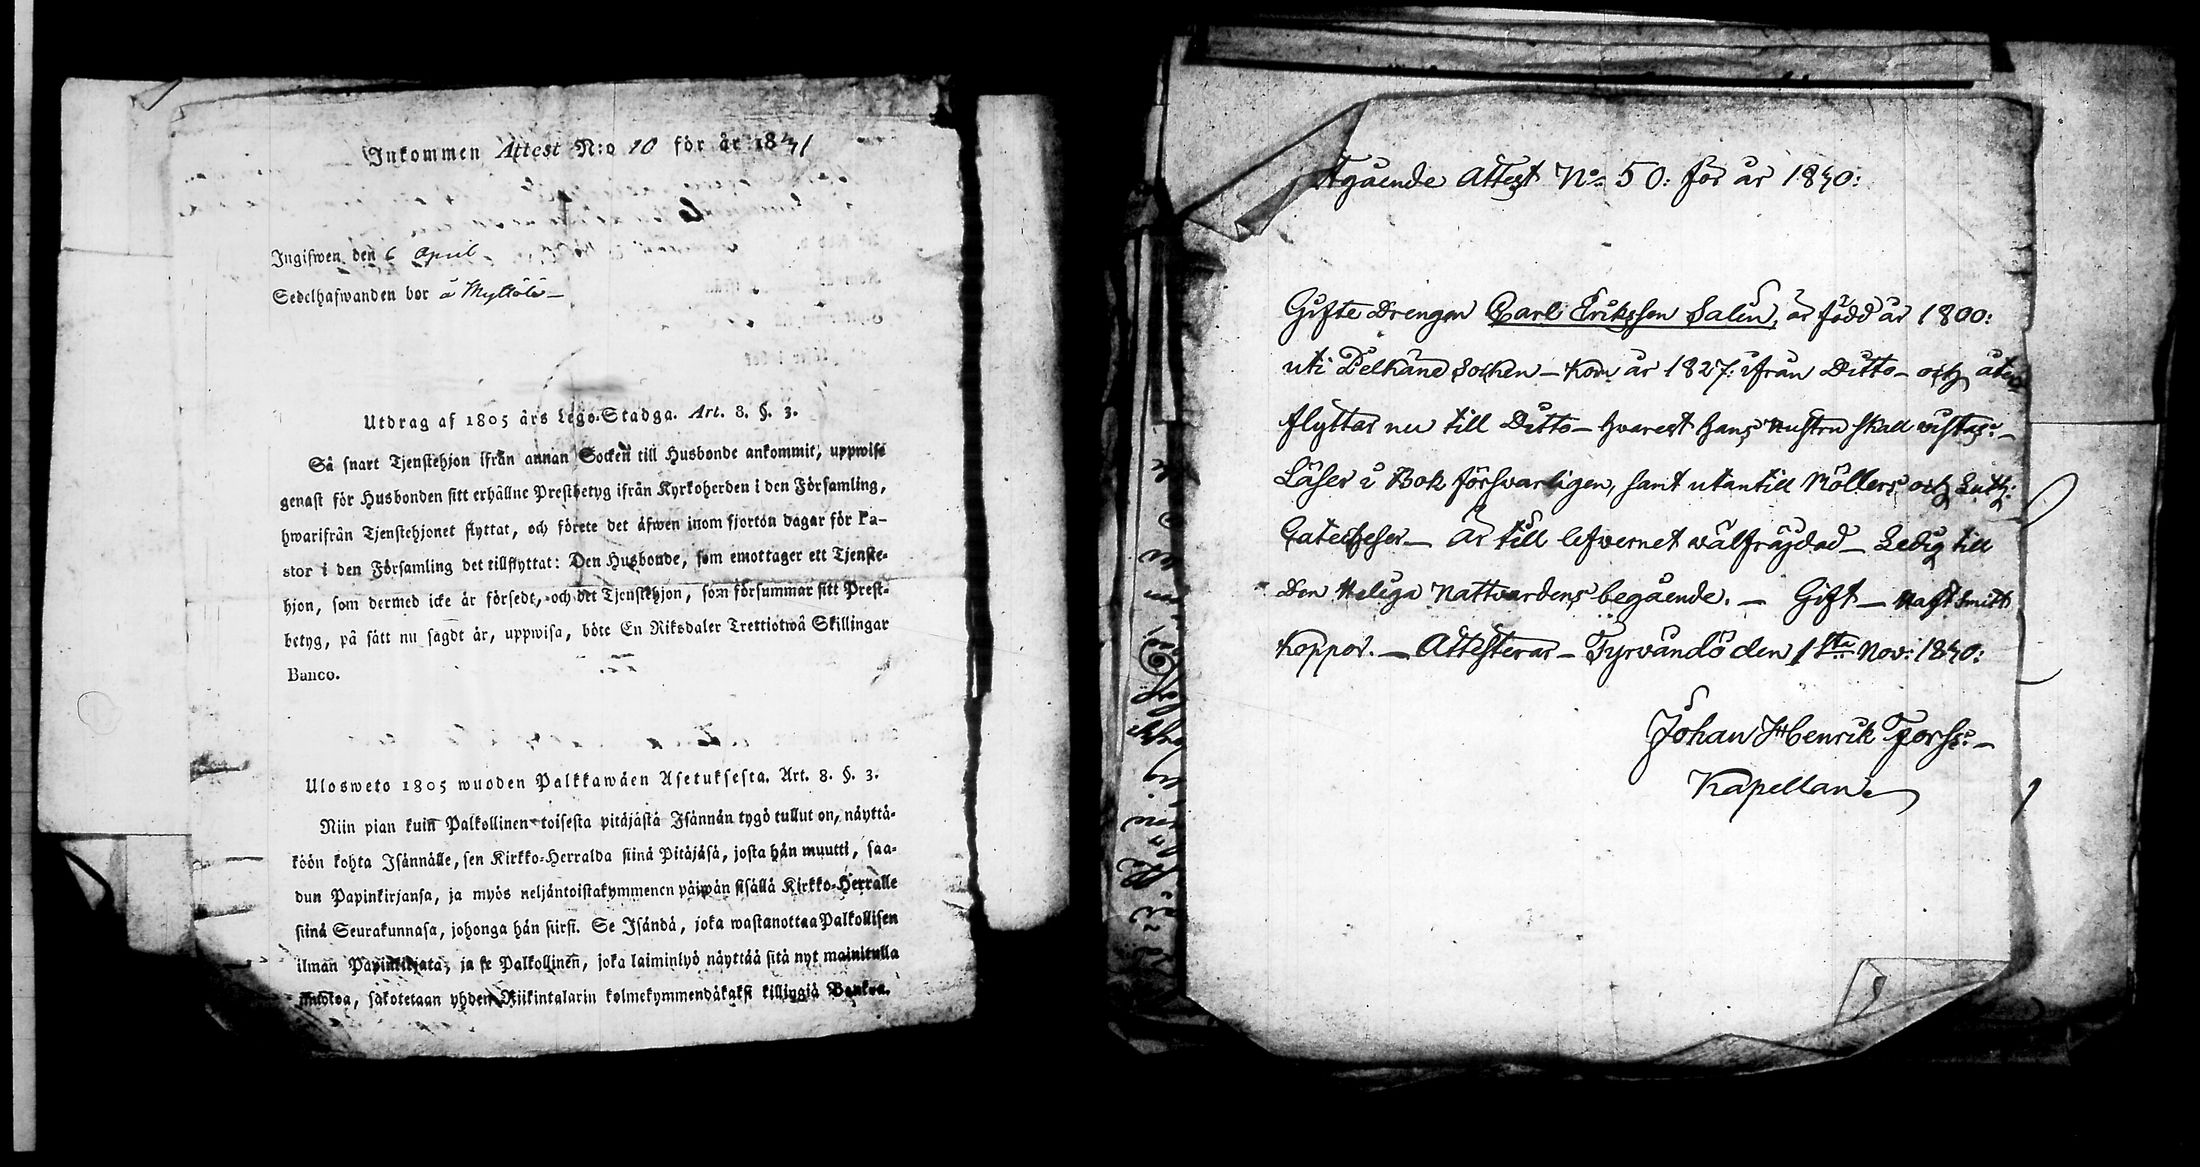 Inkommen Attest N:o 10 för år 1841
Ingifwen den 6 April
Sedelhafwanden bor å Myttälä
Utdrag af 1805 års Lego-Stadga. Art. 8. §. 3.
Så snart Tjenstehjon ifrån annan Socken till Husbonde ankommit, uppwise
genast för Husbonden sitt erhållne Prestbetyg ifrån Kyrkoherden i den Församling,
hwarifrån Tjenstehjonet flyttat, och förete det äfwen inom fjorton dagar för Pa-
stor i den Församling det tillflyttat: Den Husbonde, som emottager ett Tjenste-
hjon, som dermed icke är försedt, och det Tjenstehjon, som försummar sitt Prest-
betyg, på sätt nu sagdt är, uppwisa, böte En Riksdaler Trettiotwå Skillingar
Banco.
Ulosweto 1805 wuoden Palkkawäen Asetuksesta. Art. 8. §. 3.
Niin pian kuin Palkollinen toisesta pitäjästä Isännän tygö tullut on, näyttä-
köön kohta Isännälle, sen Kirkko-Herralda siinä Pitäjäsä, josta hän muutti, saa-
dun Papinkirjansa, ja myös neljäntoistakymmenen päiwän sisällä Kirkko-Herralle
siinä Seurakunnasa, johonga hän siirsi. Se Isändä, joka wastanottaa Palkollisen
ilman Papinkirjata, ja se Palkollinen, joka laiminlyö näyttää sitä nyt mainitulla
muotoa, sakotetaan yhden Riikintalarin kolmekymmendäkaksi killingiä Bankoa.
Utgående Attest No 50: för år 1840:
Gifte Drengen Carl Eriksson Salin, är född år 1800:
uti Pelkäne Socken – Kom år 1827: ifrån Ditto – och åter
flyttar nu till Ditto – hvarest hans Hustru skall vistas: –
Läser i Bok försvarligen, samt utantill Möllers och Luth:
Catecheser – Är till lefvernet wälfrägdad – Ledig till
den Heliga Nattvardens begående. – Gift – Haft Smitt
Koppor. – Attesterar – Tyrvändö den 1sta Nov: 1840:
Johan Henrik Forss: –
Kapellan